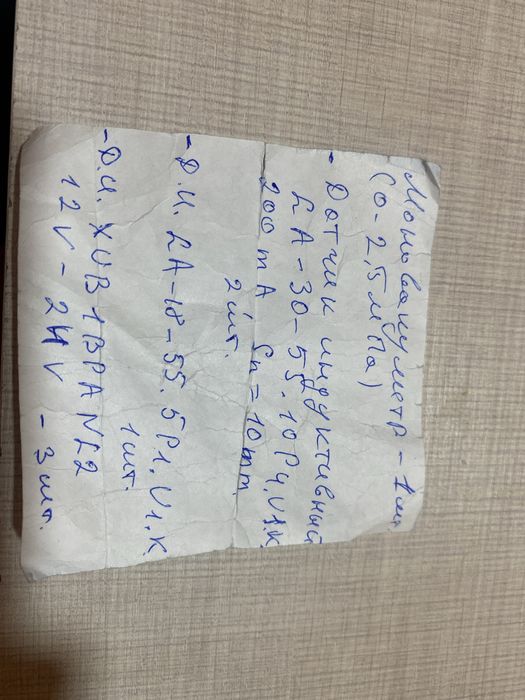 Мановакуметр - 1шт.
(0-2,5 мПа)
- Датчик индуктивный
LA-30-55.10P4.U1.K
200 mA Sn=10mm
2шт.
- Д.И. LA-18-55.5P1.U1.K.
1шт.
- Д.И. XUB1BPANL2
12V - 24V - 3шт.